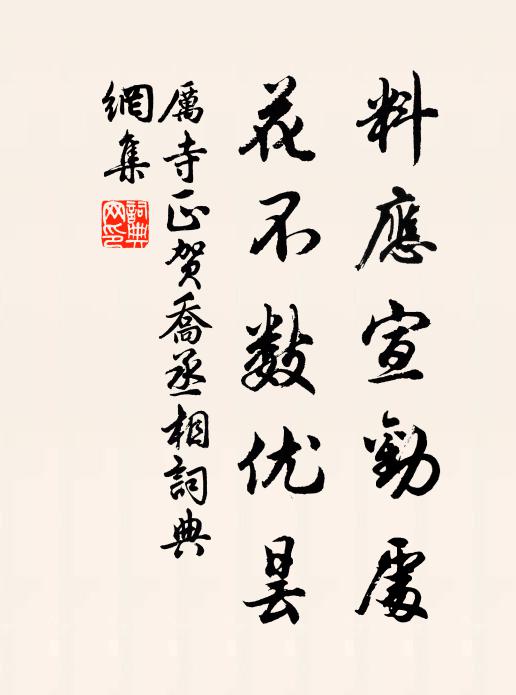 料應宣勸處
花不数优昙
厲寺正贺喬丞相詞典
網集
詞典
网印